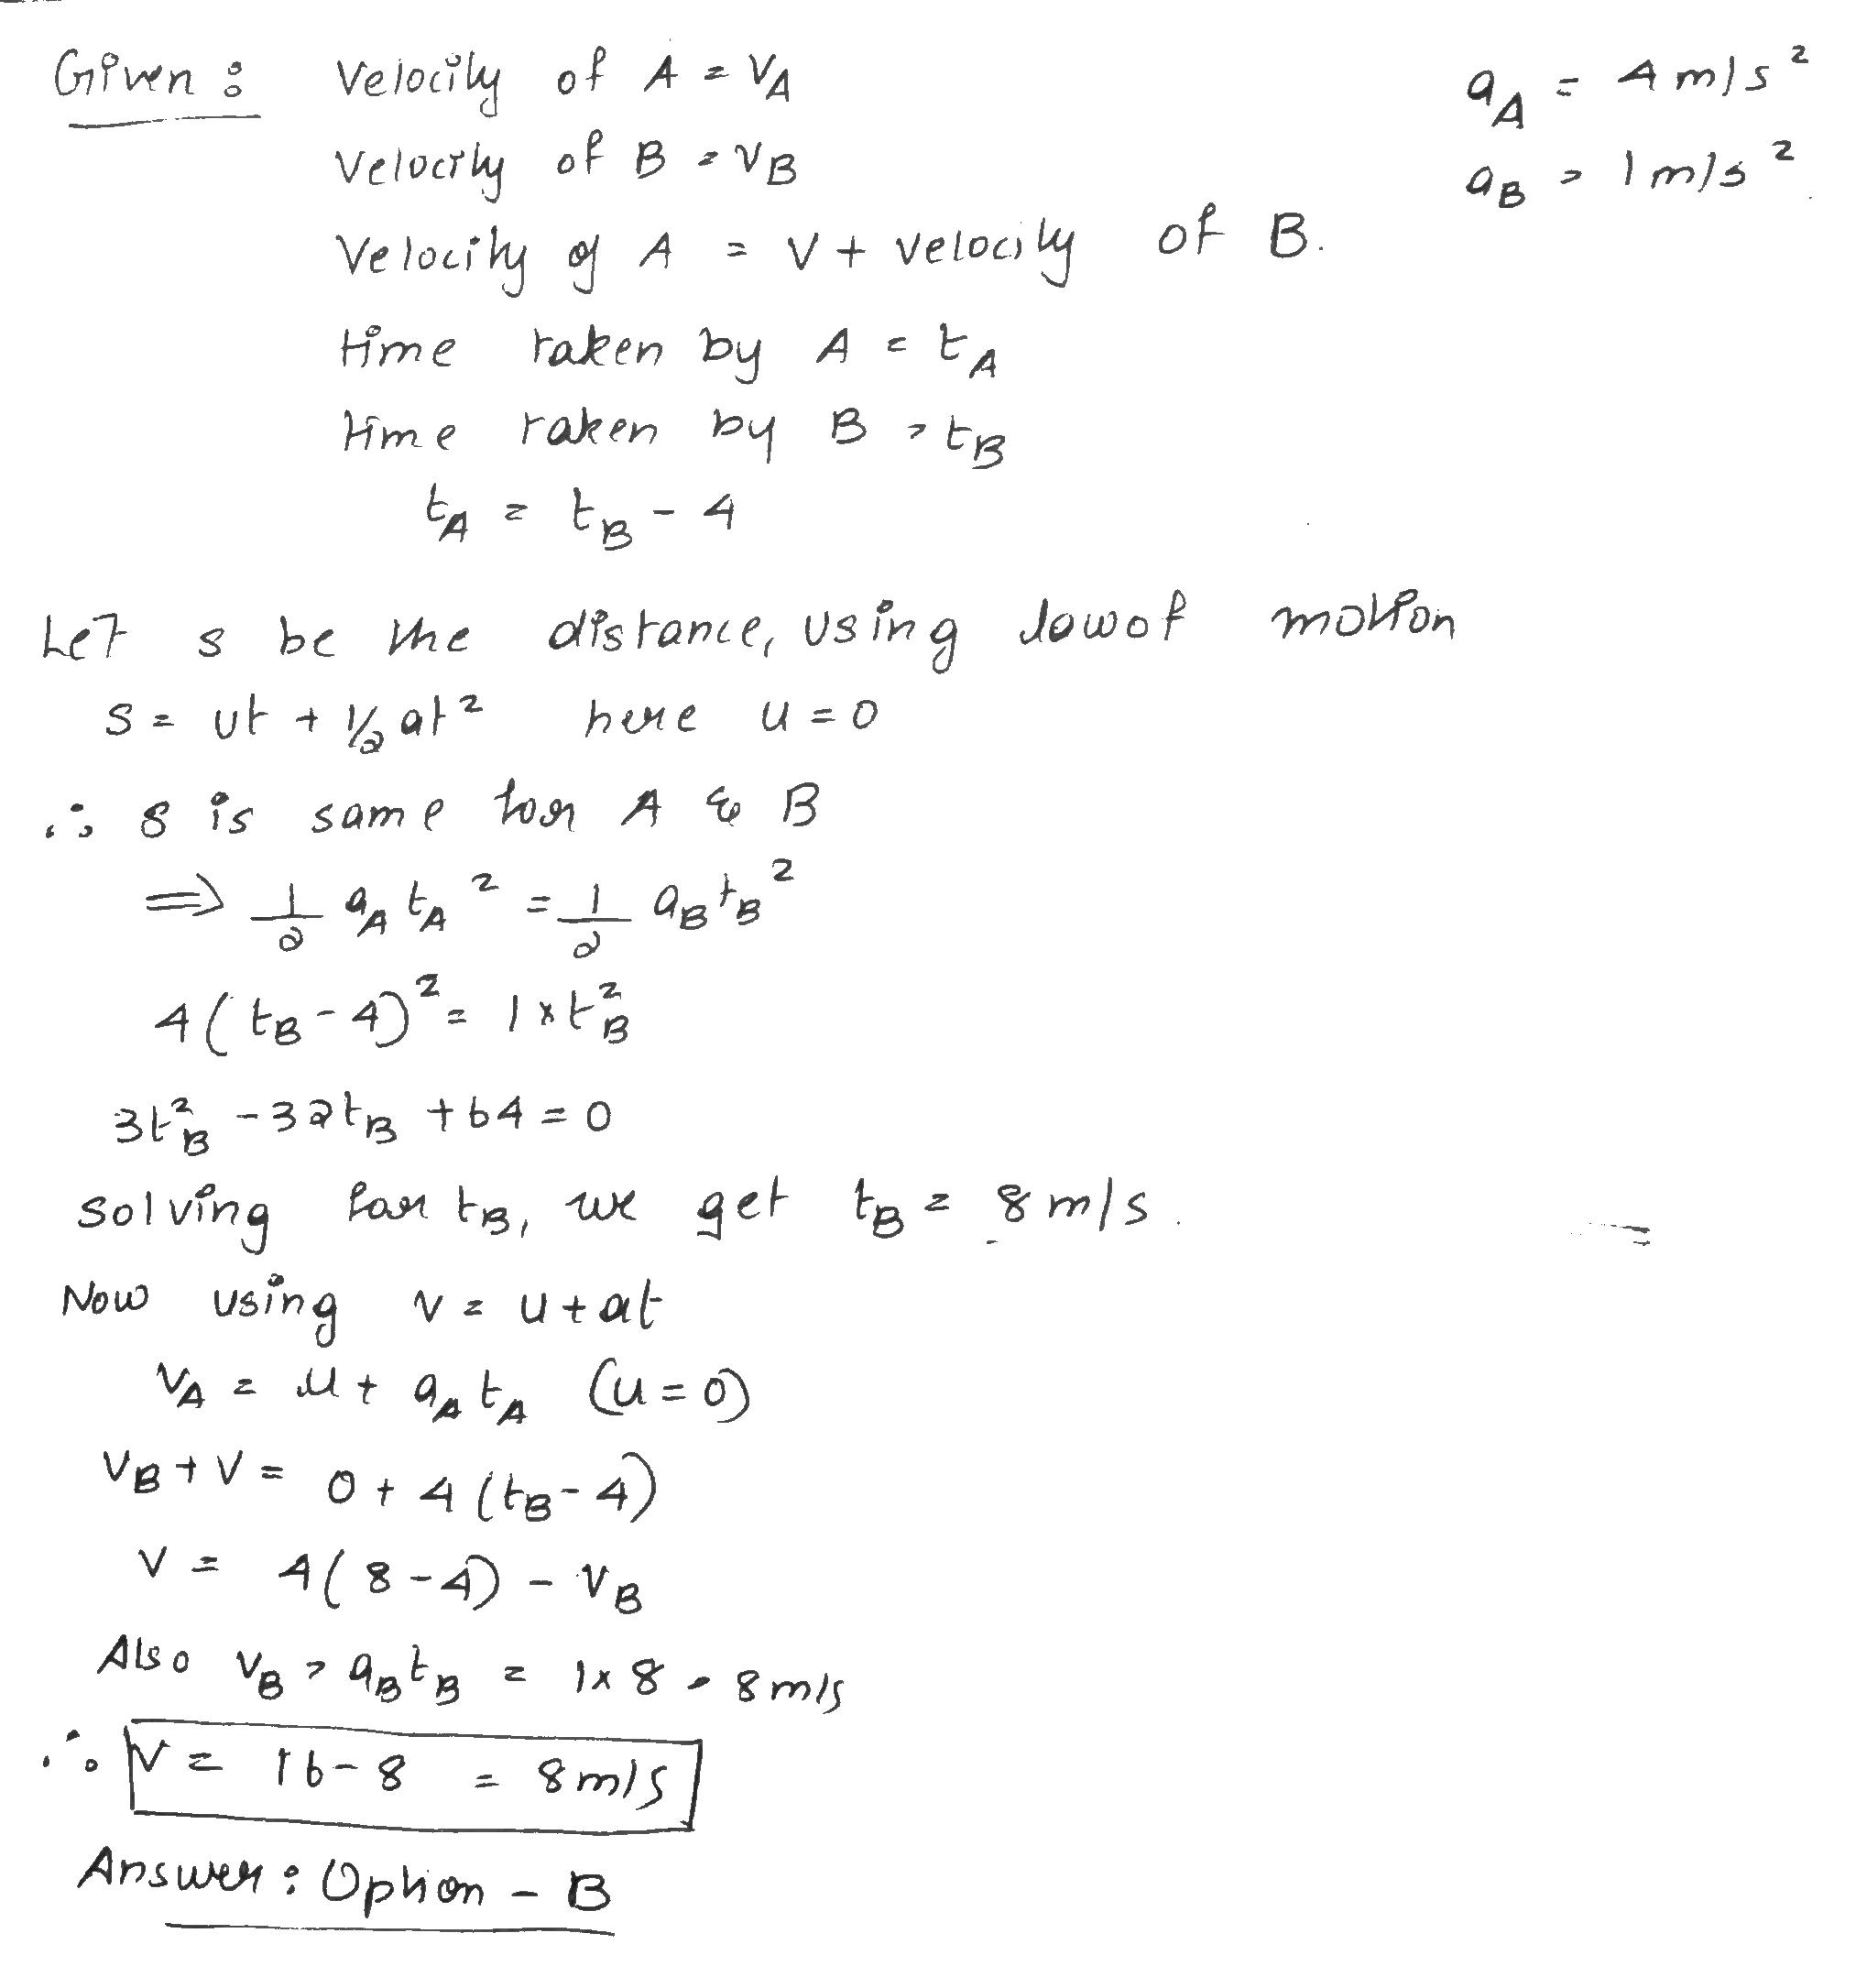 Given : Velocity of A = VA
aA = 4 m/s²
Velocity of B = VB
aB = 1 m/s²
Velocity of A = V + velocity of B.
time taken by A = tA
time taken by B = tB
tA = tB - 4
Let s be the distance, using law of motion
S = ut + 1/2 at² here u = 0
∴ s is same for A & B
⇒ 1/2 aA tA² = 1/2 aB tB²
4(tB - 4)² = 1 × tB²
3tB² - 32tB + 64 = 0
solving for tB, we get tB = 8 m/s.
Now using v = u + at
VA = u + aA tA (u = 0)
VB + V = 0 + 4(tB - 4)
V = 4(8 - 4) - VB
Also VB = aB tB = 1 × 8 = 8 m/s
∴ V = 16 - 8 = 8 m/s
Answer : Option - B